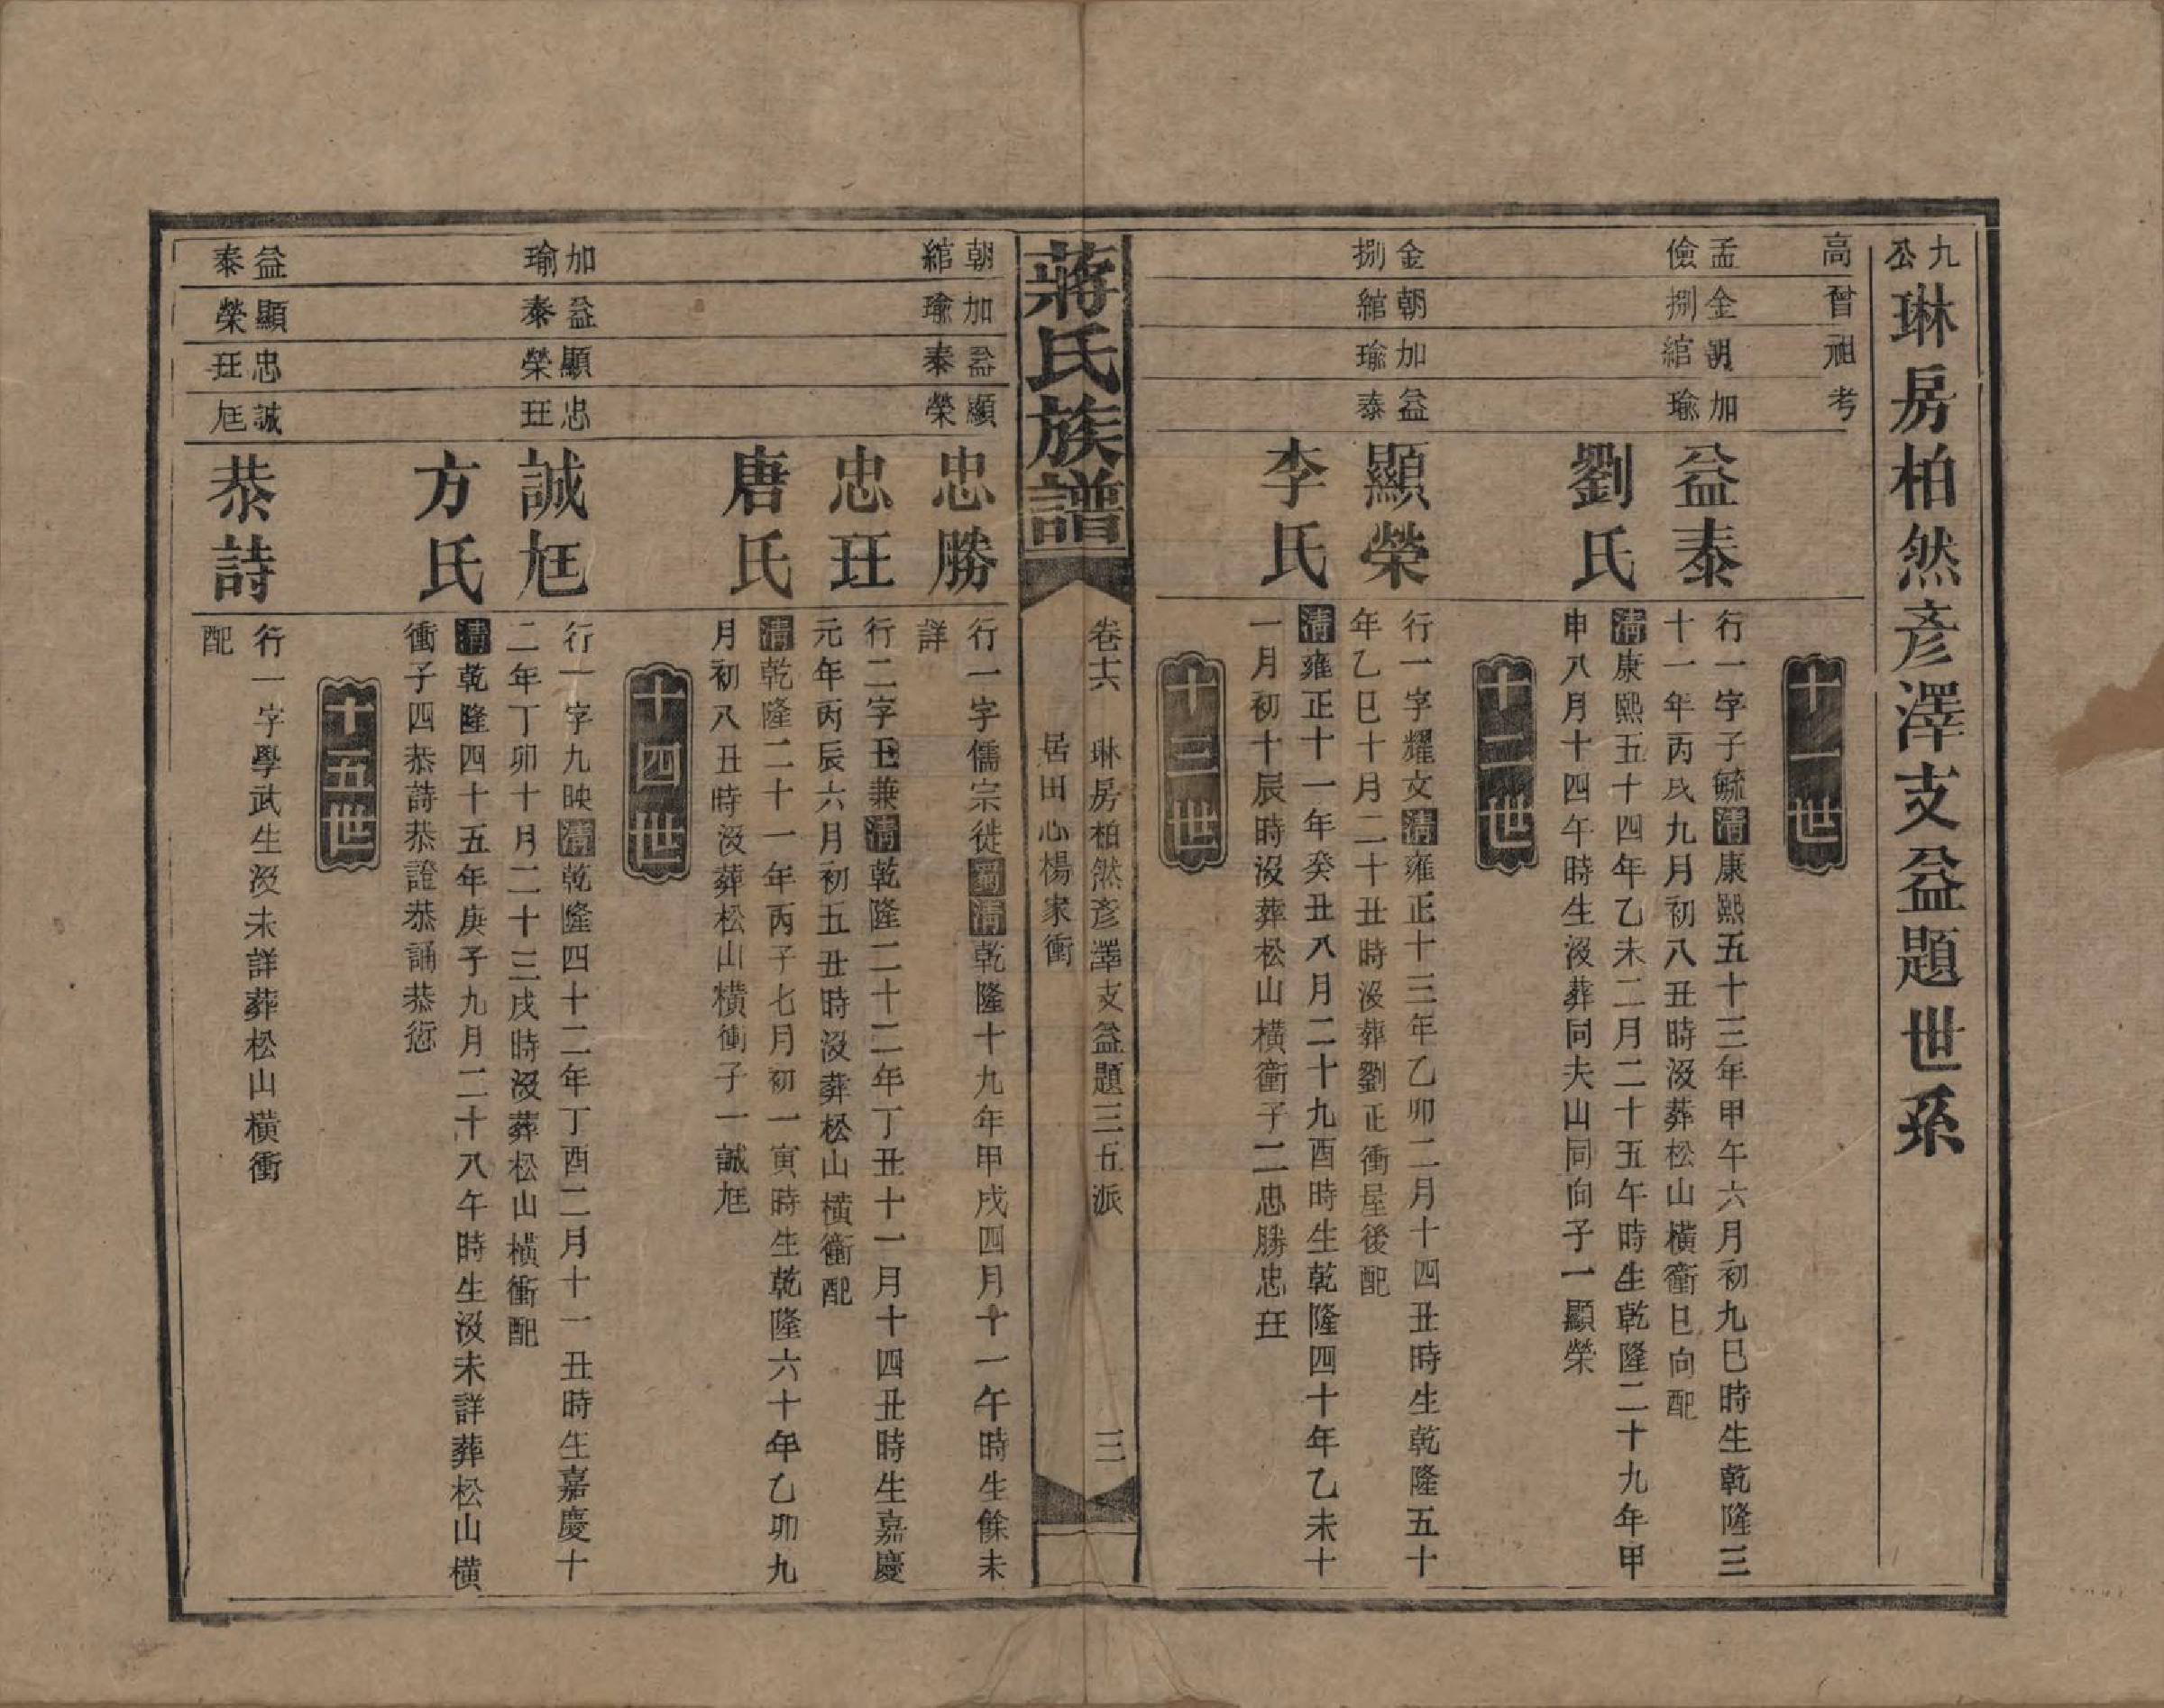 九公琳房柏然彥澤支益題世系
高
曾
祖
考
十一世
孟儉
金捌
朝綰
加瑜
益泰
行一字子毓清康熙五十三年甲午六月初九巳時生乾隆三
十一年丙戌九月初八丑時沒葬松山橫衝巳向配
劉氏
清康熙五十四年乙未二月二十五午時生乾隆二十九年甲
申八月十四午時生沒葬同夫山同向子一顯榮
十二世
金捌
朝綰
加瑜
益泰
顯榮
行一字耀文清雍正十三年乙卯二月十四丑時生乾隆五十
年乙巳十月二十丑時沒葬劉正衝屋後配
李氏
清雍正十一年癸丑八月二十九酉時生乾隆四十年乙未十
一月初十辰時沒葬松山橫衝子二忠勝忠玨
十三世
蔣氏族譜
卷十六 琳房柏然彥澤支益題三五派 三
居田心楊家衝
朝綰
加瑜
益泰
顯榮
忠勝
行一字儒宗徙蜀清乾隆十九年甲戌四月十一午時生餘未
詳
忠玨
行二字玉兼清乾隆二十二年丁丑十一月十四丑時生嘉慶
元年丙辰六月初五丑時沒葬松山橫衝配
唐氏
清乾隆二十一年丙子七月初一寅時生乾隆六十年乙卯九
月初八丑時沒葬松山橫衝子一誠尫
十四世
加瑜
益泰
顯榮
忠玨
誠尫
行一字九映清乾隆四十二年丁酉二月十一丑時生嘉慶十
二年丁卯十月二十三戌時沒葬松山橫衝配
方氏
清乾隆四十五年庚子九月二十八午時生沒未詳葬松山橫
衝子四恭詩恭證恭誦恭愆
十五世
益泰
顯榮
忠玨
誠尫
恭詩
行一字學武生沒未詳葬松山橫衝
配